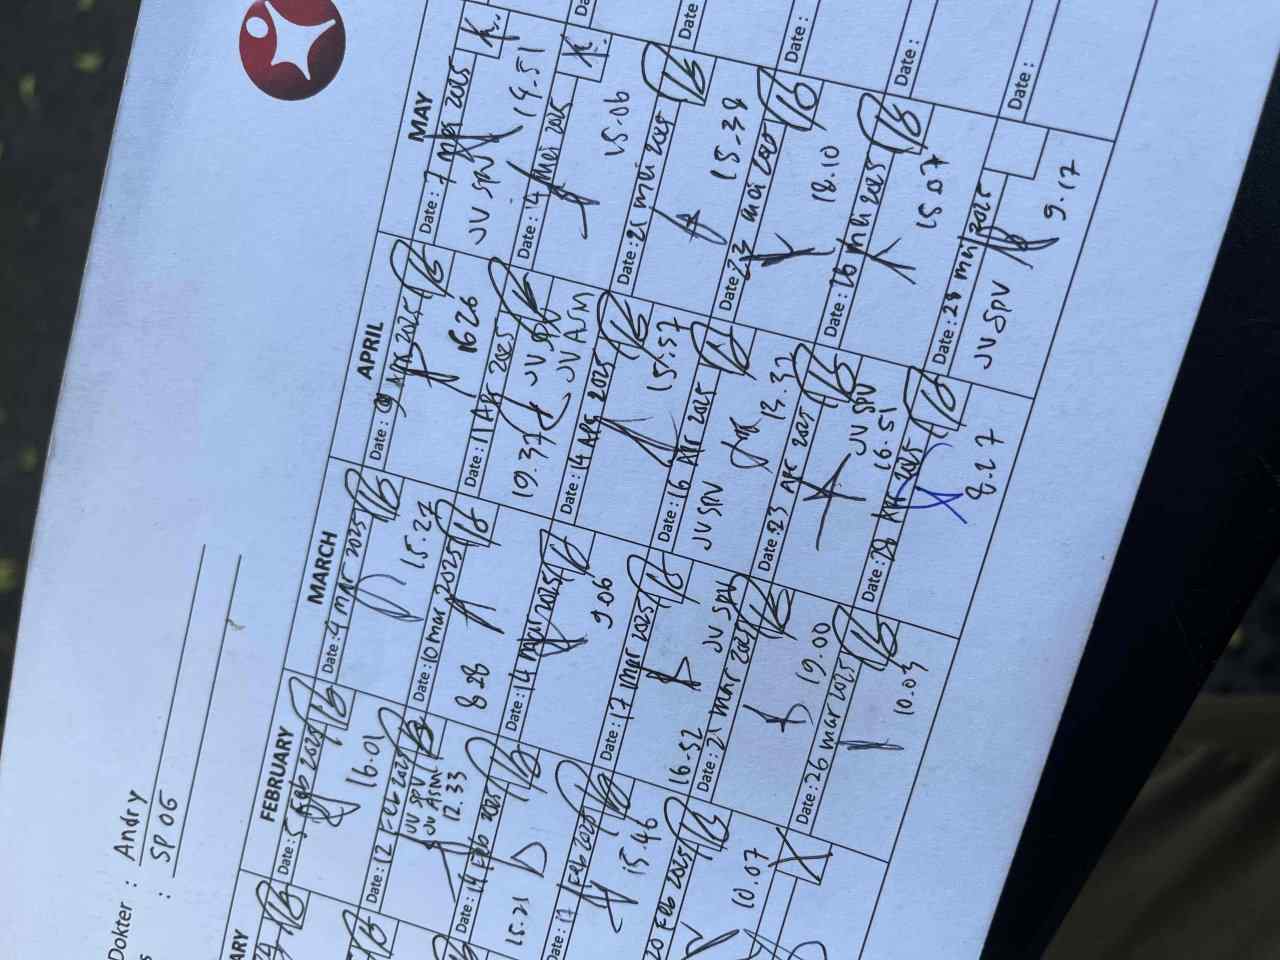 Dokter : Andry
: SP 06
FEBRUARY
Date: 5 Feb 2025
16.01
Date: 12 Feb 2025
JV SPV
JV ASM
12.33
Date: 14 Feb 2025
15.21
Date: 17 Feb 2025
15.46
20 Feb 2025
10.07
MARCH
Date: 4 mar 2025
15.27
Date: 10 mar 2025
8.28
Date: 14 mar 2025
9.06
Date: 17 mar 2025
JV SPV
16.52
Date: 21 mar 2025
19.00
Date: 26 mar 2025
10.03
APRIL
Date: 9 Apr 2025
16 26
Date: 11 Apr 2025
19.37
JV SPV
JV ASM
Date: 14 Apr 2025
15.57
Date: 16 Apr 2025
JV SPV
13.32
Date: 23 Apr 2025
JV SPV
16.51
Date: 28 Apr 2025
8.27
MAY
Date: 7 mei 2025
K.
JV SPV
19.51
Date: 14 mei 2025
K.
15.06
Date: 21 mei 2025
15.38
Date: 23 mei 2025
18.10
Date: 26 mei 2025
15.07
Date: 28 mei 2025
JV SPV
9.17
Date
Date:
Date:
Date: